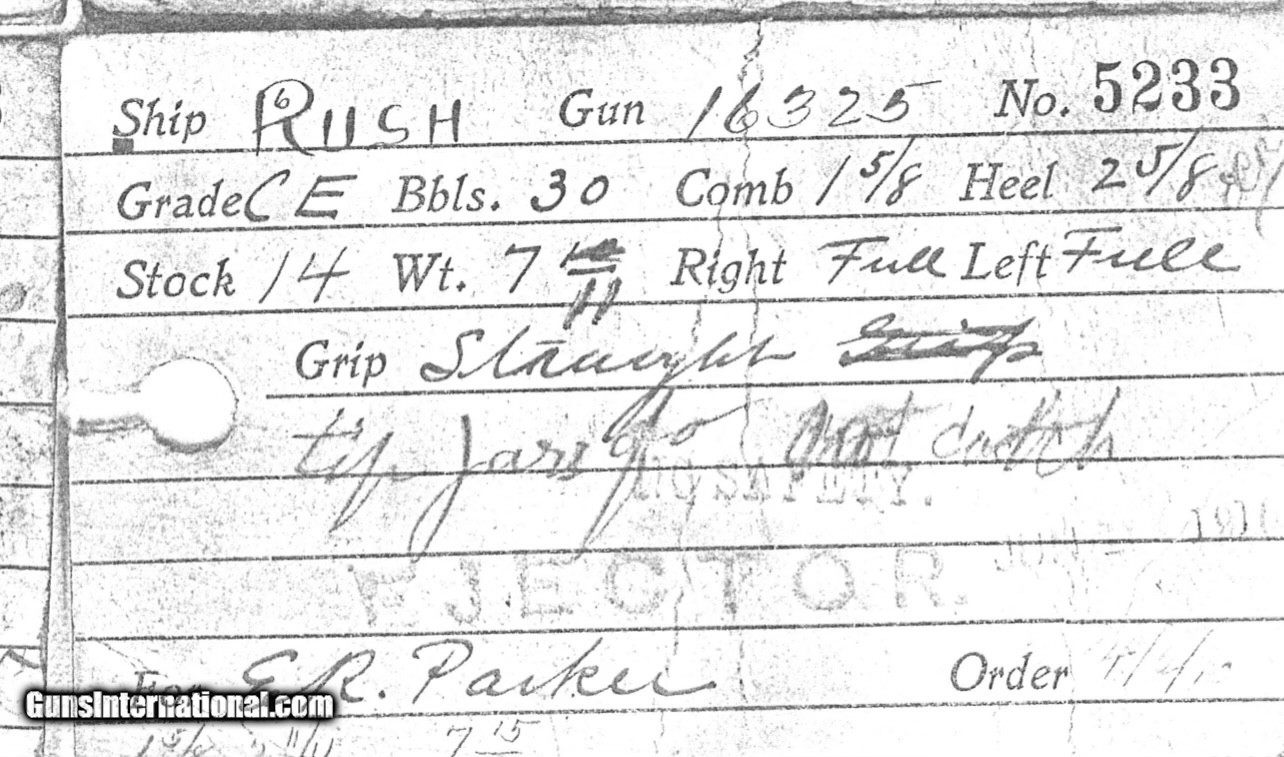 Ship RUSH Gun 16325 No. 5233
Grade CE Bbls. 30 Comb 1 5/8 Heel 2 5/8
Stock 14 Wt. 7 Right Full Left Full
Grip Straight Grip
NO SAFETY.
EJECTOR
For E.R. Parker Order
GunsInternational.com
7 15